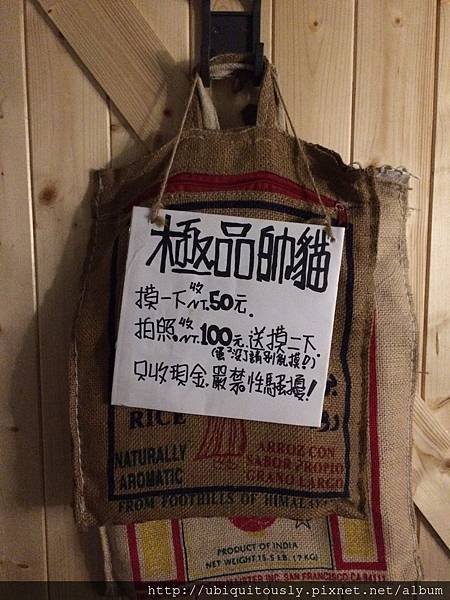 極品帥貓
摸一下收NT.50元.
拍照.收NT.100元.送摸二下.
只收現金.嚴禁性騷擾!
RICE
NATURALLY
AROMATIC
ARROZ CON
SABOR PROPIO
GRANO LARGO
FROM FOOTHILLS OF HIMALA
PRODUCT OF INDIA
NET WEIGHT 15.5 LB. (7 KG)
INC. SAN FRANCISCO, CA 94111
http://ubiquitously.pixnet.net/album